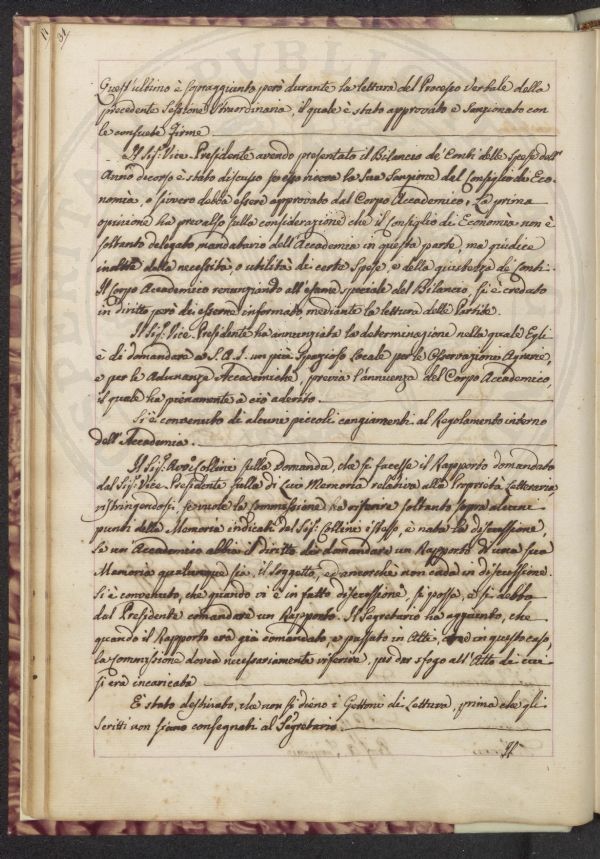 31
Quest'ultimo è sopraggiunto però durante la lettura del Processo Verbale della
precedente Sessione Straordinaria, il quale è stato approvato e Sanzionato con
le consuete Firme
Il Sig.r Vice-Presidente avendo presentato il Bilancio de' Conti delle Spese dell'
Anno decorso è stato discusso se esso riceva la Sua Sanzione dal Consiglio di Eco-
nomìa, o sivvero debba essere approvato dal Corpo Accademico. La prima
opinione ha prevalso sulla considerazione che il Consiglio di Economìa non è
soltanto delegato mandatario dell'Accademia in questa parte, ma giudice
inoltre della necessità, o utilità di certe Spese, e della giustezza de' Conti.
Il Corpo Accademico renunziando all'esame speciale del Bilancio, si è creduto
in diritto però di esserne informato mediante la lettura delle Partite.
Il Sig.r Vice-Presidente ha annunziata la determinazione nella quale Egli
è di domandare a S.A.I. un più Spazioso Locale per le Osservazioni Agrarie,
e per le Adunanze Accademiche, previa l'annuenza del Corpo Accademico,
il quale ha pienamente a ciò aderito.
Si è convenuto di alcuni piccoli cangiamenti al Regolamento interno
dell'Accademia.
Il Sig.r Avv.o Collini sulla Domanda, che si facesse il Rapporto domandato
dal Sig.r Vice-Presidente sulla di Lui Memoria relativa alla Proprietà Letteraria,
ristringendosi, se vuole la Commissione ha riferire soltanto sopra alcuni
punti della Memoria indicati dal Sig.r Collini istesso, è nata la discussione,
se un Accademico abbia il diritto di domandare un Rapporto d'una sua
Memoria qualunque sia, il soggetto, ed ancorchè non cada in discussione.
Si è convenuto, che quando vi è in fatto discussione, si possa, e si debba
dal Presidente comandare un Rapporto. Il Segretario ha aggiunto, che
quando il Rapporto era già comandato, e passato in Atti, in questo caso,
la Commissione dovea necessariamente riferire, per dar sfogo all'Atto di cui
si era incaricata
È stato destinato, che non si dieno i Gettoni di Lettura, prima che gli
Scritti non siano consegnati al Segretario.
Il